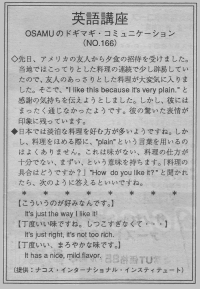 英語講座
OSAMUのドギマギ・コミュニケーション
(NO.166)
◇先日、アメリカの友人から夕食の招待を受けました。
当地ではこってりとした料理の連続で少し辟易してい
たので、友人のあっさりとした料理が大変気に入りま
した。そこで、"I like this because it's very plain." と
感謝の気持ちを伝えようとしました。しかし、彼には
まったく通じなかったようです。彼の驚いた表情が
印象に残っています。
◆日本では淡泊な料理を好む方が多いようですね。しか
し、料理をほめる際に、"plain"という言葉を用いるの
はよくありません。これは味がない、料理の仕方が
十分でない、まずい、という意味を持ちます。「料理の
具合はどうですか？」"How do you like it?" と聞かれ
たら、次のように答えるといいですね。
＊ ＊ ＊ ＊ ＊ ＊ ＊ ＊
【こういうのが好みなんです。】
It's just the way I like it!
【丁度いい味ですね。しつこすぎなくて・・・。】
It's just right, it's not too rich.
【丁度いい、まろやかな味です。】
It has a nice, mild flavor.
(提供：ナコス・インターナショナル・インスティテュート)